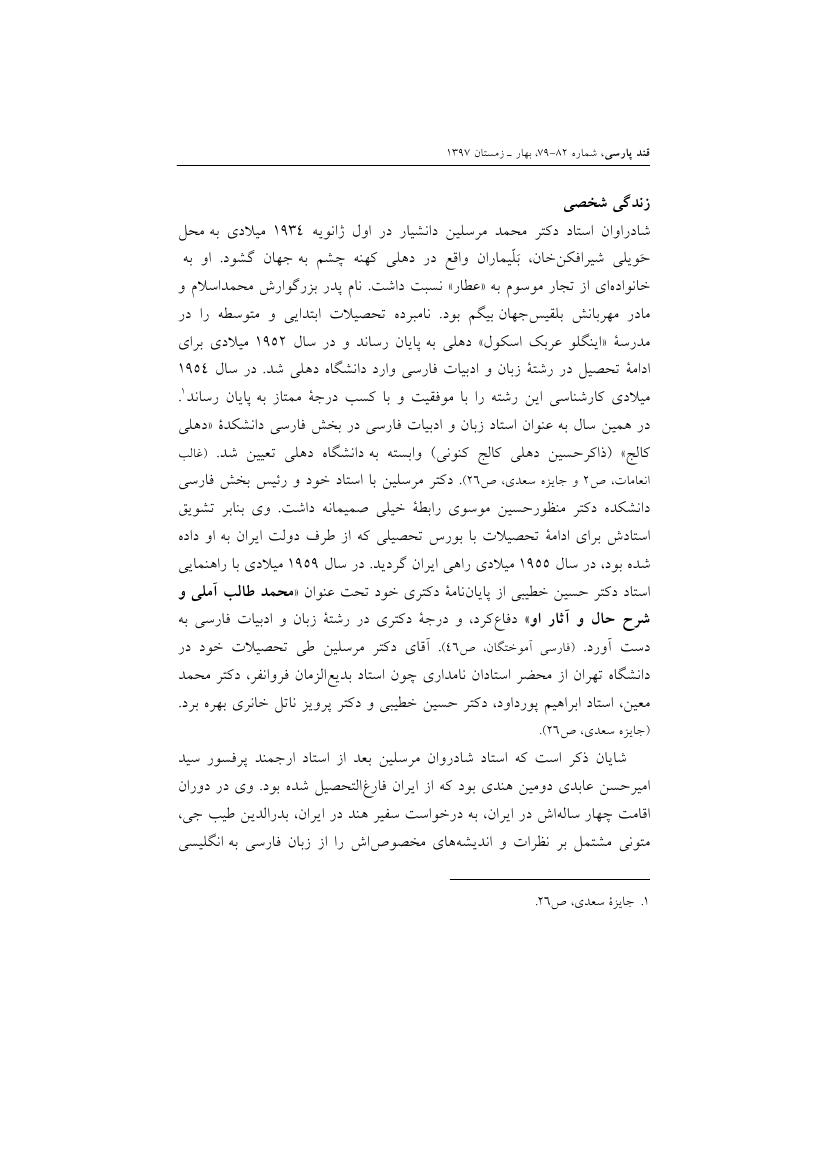 قند پارسی، شماره ۸۲-۷۹، بهار ـ زمستان ۱۳۹۷
زندگی شخصی
شادراوان استاد دکتر محمد مرسلین دانشیار در اول ژانویه ۱۹۳٤ میلادی به محل
حَویلی شیرافکن‌خان، بَلّیماران واقع در دهلی کهنه چشم به جهان گشود. او به
خانواده‌ای از تجار موسوم به «عطار» نسبت داشت. نام پدر بزرگوارش محمداسلام و
مادر مهربانش بلقیس‌جهان بیگم بود. نامبرده تحصیلات ابتدایی و متوسطه را در
مدرسۀ «اینگلو عربک اسکول» دهلی به پایان رساند و در سال ۱۹٥۲ میلادی برای
ادامۀ تحصیل در رشتۀ زبان و ادبیات فارسی وارد دانشگاه دهلی شد. در سال ۱۹٥٤
میلادی کارشناسی این رشته را با موفقیت و با کسب درجۀ ممتاز به پایان رساند۱.
در همین سال به عنوان استاد زبان و ادبیات فارسی در بخش فارسی دانشکدۀ «دهلی
کالج» (ذاکرحسین دهلی کالج کنونی) وابسته به دانشگاه دهلی تعیین شد. (غالب
انعامات، ص۲ و جایزه سعدی، ص۲٦). دکتر مرسلین با استاد خود و رئیس بخش فارسی
دانشکده دکتر منظورحسین موسوی رابطۀ خیلی صمیمانه داشت. وی بنابر تشویق
استادش برای ادامۀ تحصیلات با بورس تحصیلی که از طرف دولت ایران به او داده
شده بود، در سال ۱۹٥٥ میلادی راهی ایران گردید. در سال ۱۹٥۹ میلادی با راهنمایی
استاد دکتر حسین خطیبی از پایان‌نامۀ دکتری خود تحت عنوان «محمد طالب آملی و
شرح حال و آثار او» دفاع‌کرد، و درجۀ دکتری در رشتۀ زبان و ادبیات فارسی به
دست آورد. (فارسی آموختگان، ص٤٦). آقای دکتر مرسلین طی تحصیلات خود در
دانشگاه تهران از محضر استادان نامداری چون استاد بدیع‌الزمان فروانفر، دکتر محمد
معین، استاد ابراهیم پورداود، دکتر حسین خطیبی و دکتر پرویز ناتل خانری بهره برد.
(جایزه سعدی، ص۲٦).
شایان ذکر است که استاد شادروان مرسلین بعد از استاد ارجمند پرفسور سید
امیرحسن عابدی دومین هندی بود که از ایران فارغ‌التحصیل شده بود. وی در دوران
اقامت چهار ساله‌اش در ایران، به درخواست سفیر هند در ایران، بدرالدین طیب جی،
متونی مشتمل بر نظرات و اندیشه‌های مخصوص‌اش را از زبان فارسی به انگلیسی
۱. جایزۀ سعدی، ص۲٦.